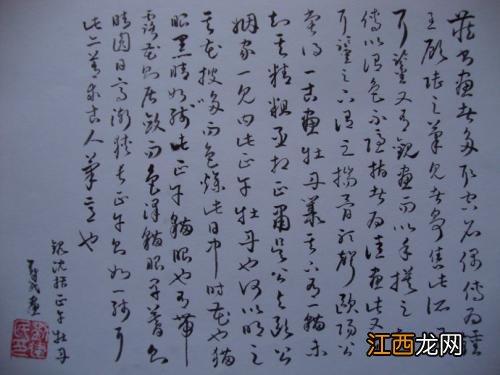 藏書畫者多取空名偶傳為鍾
王顧陸之筆見者爭售此所謂
耳鑒又有觀畫而以手摸之相
傳以謂色不隱指者為佳畫此又在
耳鑒之下謂之揣骨聽聲歐陽公
嘗得一古畫牡丹叢其下有一貓未
知其精粗丞相正肅吳公與歐公
姻家一見曰此正午牡丹也何以明之
其花披哆而色燥此日中時花也貓
眼黑睛如線此正午貓眼也有帶
露花則房斂而色澤貓眼早暮則
睛圓日高漸狹長正午則如一線耳
此亦善求古人筆意也
錄沈括正午牡丹
江西龙网